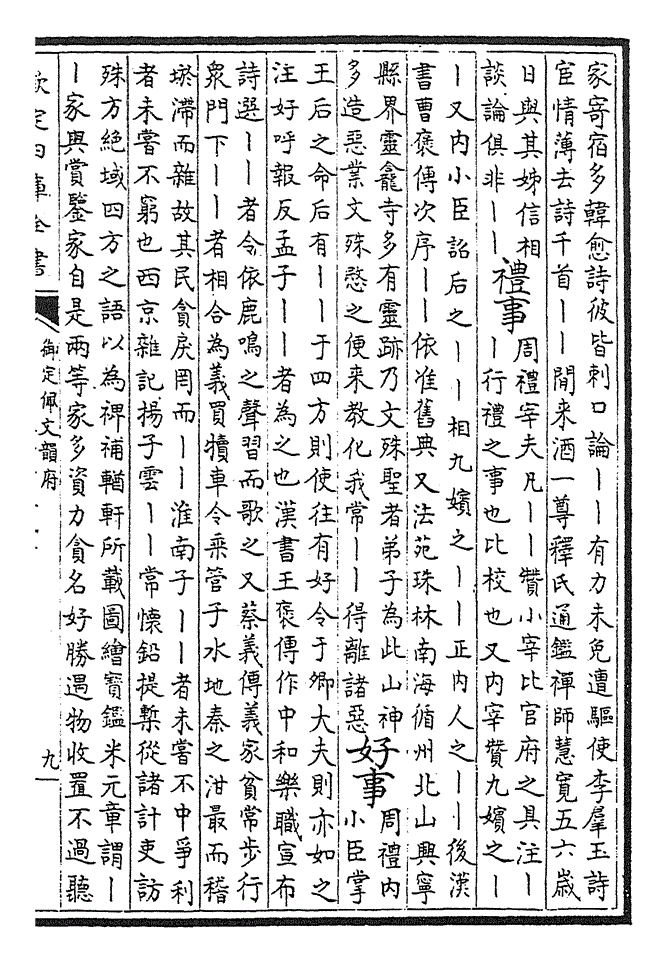 家寄宿多韓愈詩彼皆刺口論丨丨有力未免遭驅使李羣玉詩
宦情薄去詩千首丨丨閒来酒一尊釋氏通鑑禪師慧寬五六歲
日與其姊信相
談論俱非丨丨
禮事
周禮宰夫凡丨丨贊小宰比官府之具注丨
丨行禮之事也比校也又内宰贊九嬪之丨
丨又内小臣詔后之丨丨相九嬪之丨丨正内人之丨丨後漢
書曹褒傳次序丨丨依准舊典又法苑珠林南海循州北山興寧
縣界靈龕寺多有靈跡乃文殊聖者弟子為此山神
多造惡業文殊愍之便来教化我常丨丨得離諸惡
好事
周禮内
小臣掌
王后之命后有丨丨于四方則使往有好令于卿大夫則亦如之
注好呼報反孟子丨丨者為之也漢書王褒傳作中和樂職宣布
詩選丨丨者令依鹿鳴之聲習而歌之又蔡義傳義家貧常步行
衆門下丨丨者相合為義買犢車令乗管子水地秦之泔最而稽
淤滯而雜故其民貪戾罔而丨丨淮南子丨丨者未嘗不中爭利
者未嘗不窮也西京雜記揚子雲丨丨常懷鉛提槧從諸計吏訪
殊方絶域四方之語以為裨補輶軒所載圖繪寶鑑米元章謂丨
丨家與賞鑒家自是兩等家多資力貪名好勝遇物收置不過聽
欽定四庫全書
御定佩文韻府
九